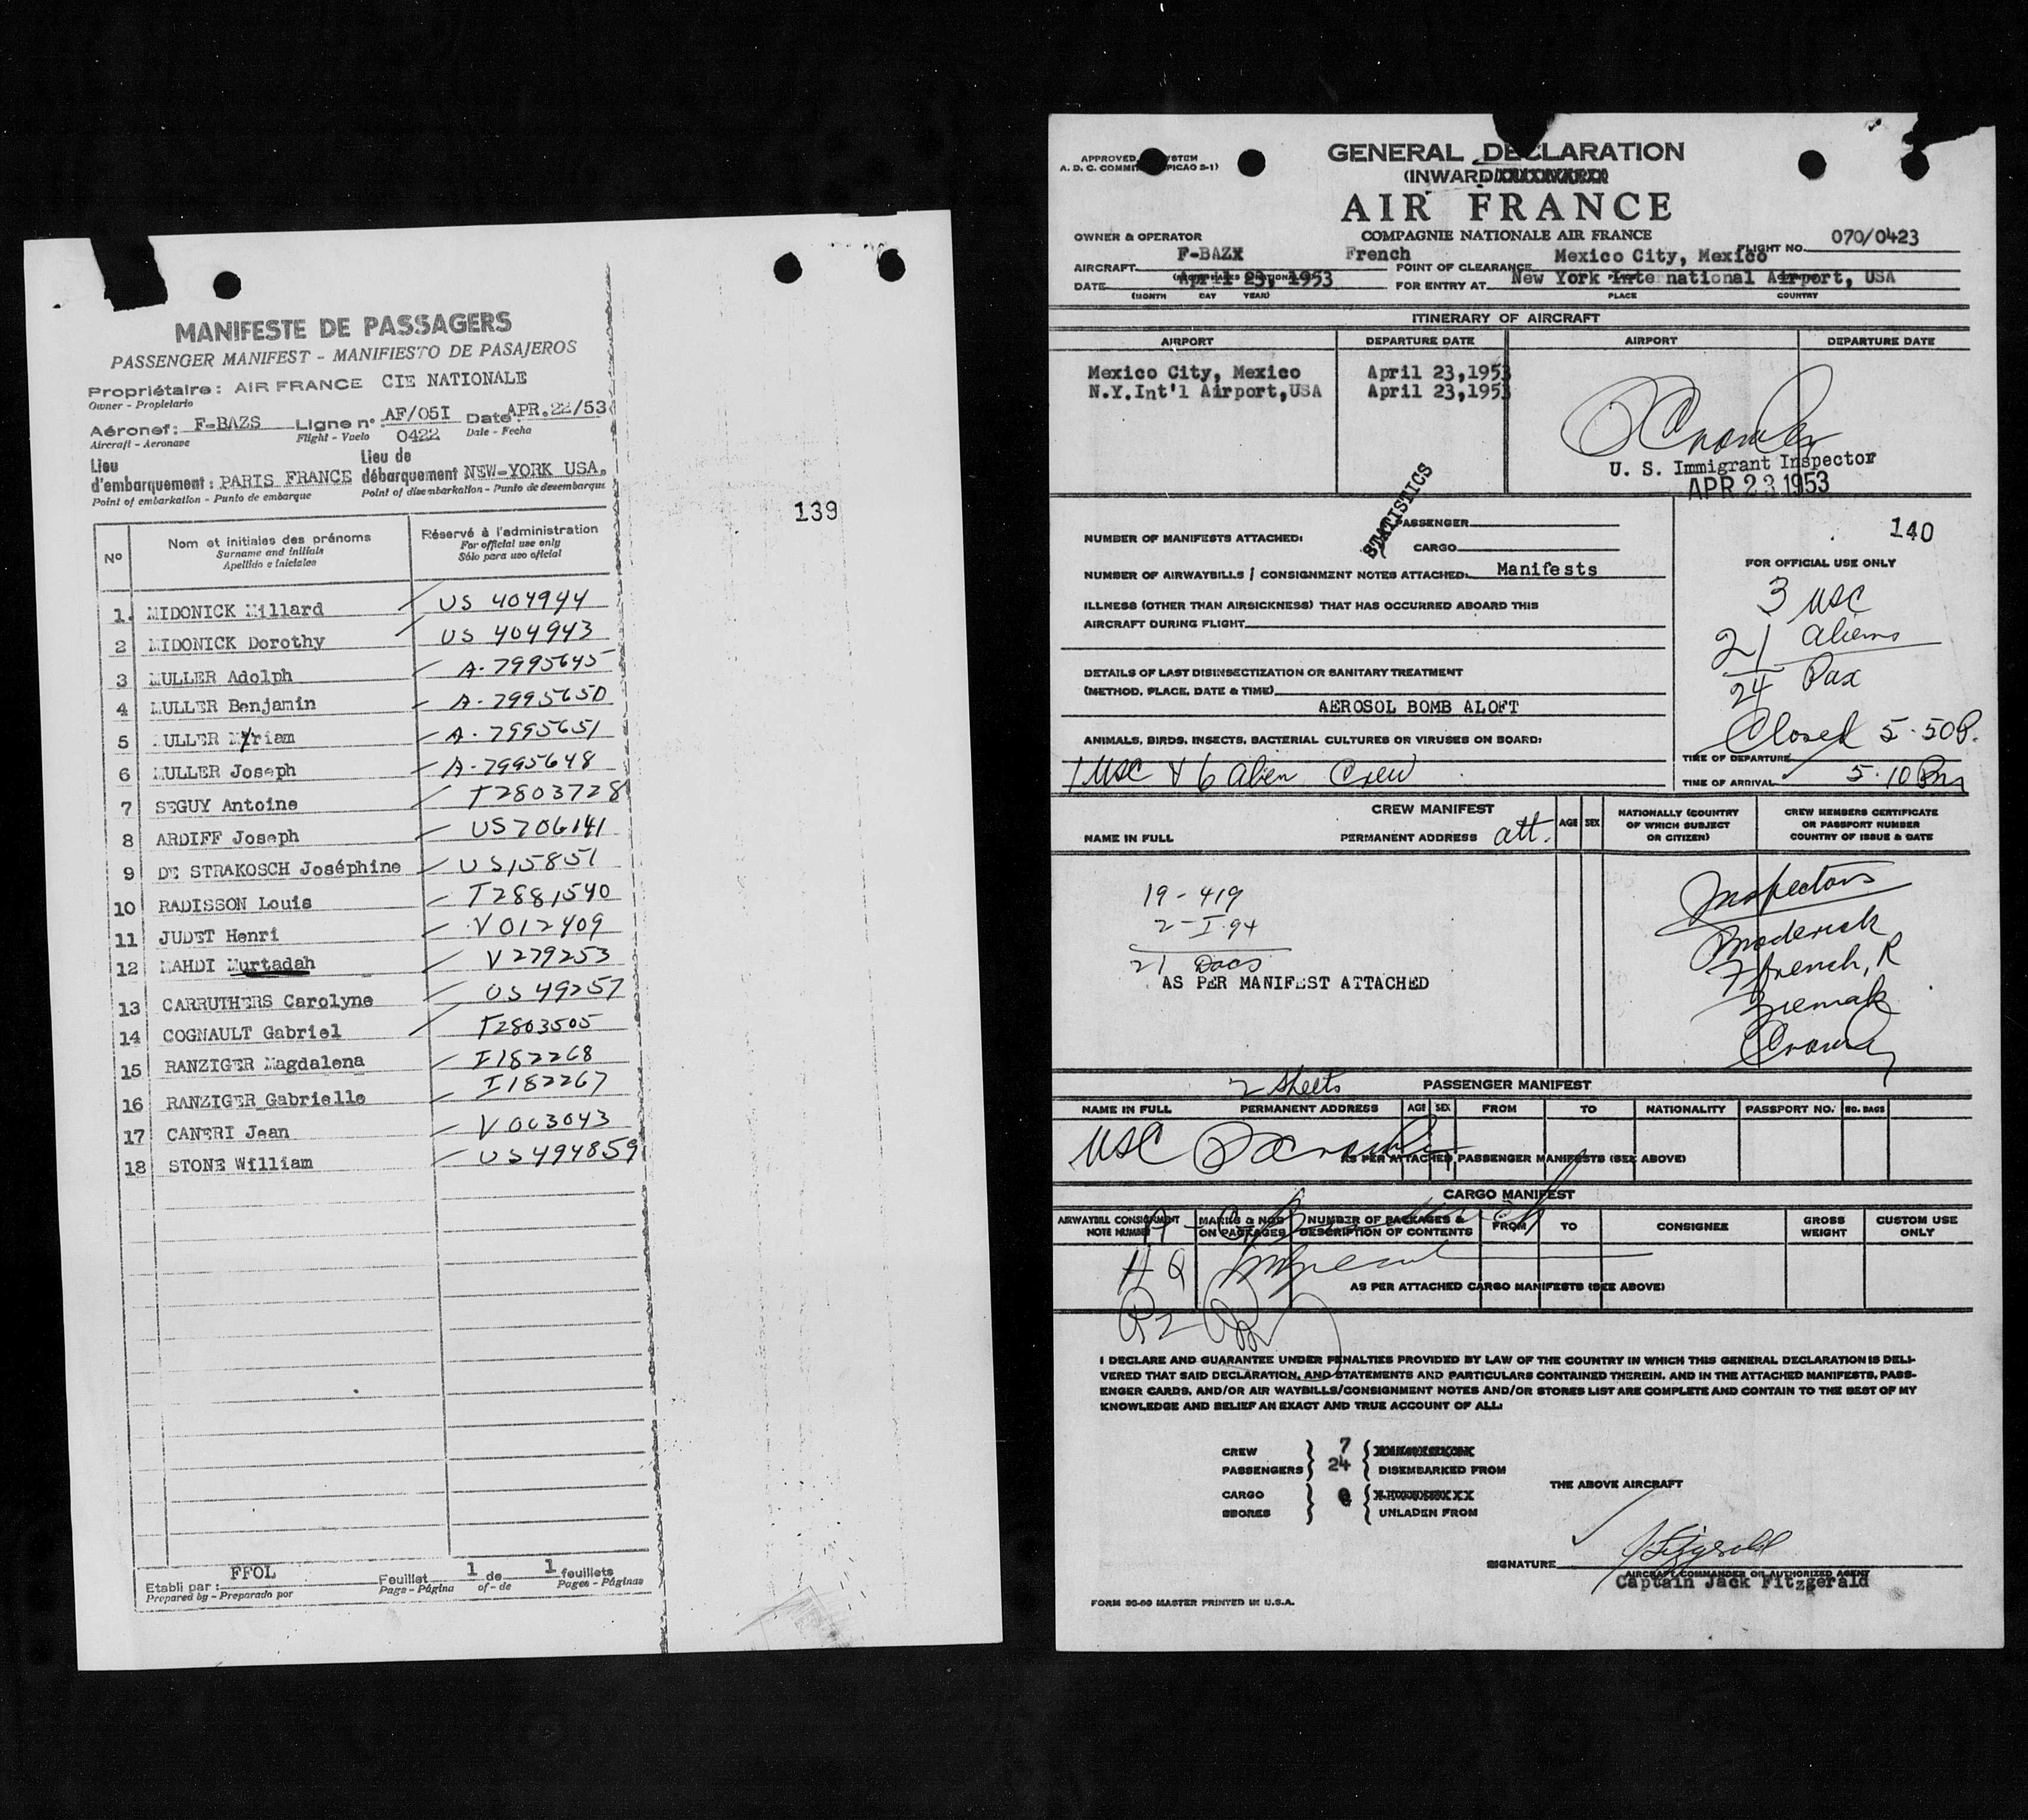 MANIFESTE DE PASSAGERS
PASSENGER MANIFEST - MANIFIESTO DE PASAJEROS
Propriétaire: AIR FRANCE CIE NATIONALE
Owner - Propietario
Aéronef: F-BAZS Ligne nº AF/051 Date APR.22/53
Aircraft - Aeronave Flight - Vuelo 0422 Date - Fecha
Lieu d'embarquement: PARIS FRANCE Lieu de débarquement NEW-YORK USA.
Point of embarkation - Punto de embarque Point of disembarkation - Punto de desembarque
139
Nº Nom et initiales des prénoms Réservé à l'administration
Surname and initials For official use only
Apellido e iniciales Sólo para uso oficial
1. MIDONICK Millard US 404944
2 MIDONICK Dorothy US 404943
3 MULLER Adolph A-7995645
4 MULLER Benjamin A-7995650
5 MULLER Myriam A-7995651
6 MULLER Joseph A-7995648
7 SEGUY Antoine T2803728
8 ARDIFF Joseph US706141
9 DE STRAKOSCH Joséphine US15851
10 RADISSON Louis T2881540
11 JUDET Henri V012409
12 MAHDI Murtadah V279253
13 CARRUTHERS Carolyne US 49257
14 COGNAULT Gabriel T2803505
15 RANZIGER Magdalena I182268
16 RANZIGER Gabrielle I182267
17 CANERI Jean V003043
18 STONE William US494859
Etabli par: FFOL Feuillet 1 de 1 feuillets
Prepared by - Preparado por Page - Página of - de Pages - Páginas
APPROVED SYSTEM
GENERAL DECLARATION
(INWARD
AIR FRANCE
OWNER & OPERATOR COMPAGNIE NATIONALE AIR FRANCE FLIGHT NO. 070/0423
AIRCRAFT F-BAZX French POINT OF CLEARANCE Mexico City, Mexico
DATE April 23, 1953 FOR ENTRY AT New York International Airport, USA
(MONTH DAY YEAR) PLACE COUNTRY
ITINERARY OF AIRCRAFT
AIRPORT DEPARTURE DATE AIRPORT DEPARTURE DATE
Mexico City, Mexico April 23,1953
N.Y.Int'l Airport,USA April 23,1953
U. S. Immigrant Inspector
APR 23 1953
STATISTICS
140
NUMBER OF MANIFESTS ATTACHED: PASSENGER
CARGO
NUMBER OF AIRWAYBILLS / CONSIGNMENT NOTES ATTACHED: Manifests
ILLNESS (OTHER THAN AIRSICKNESS) THAT HAS OCCURRED ABOARD THIS
AIRCRAFT DURING FLIGHT
DETAILS OF LAST DISINSECTIZATION OR SANITARY TREATMENT
(METHOD, PLACE, DATE & TIME)
AEROSOL BOMB ALOFT
ANIMALS, BIRDS, INSECTS, BACTERIAL CULTURES OR VIRUSES ON BOARD:
1 USC & 6 alien Crew
FOR OFFICIAL USE ONLY
3 USC
21 aliens
24 Pax
Closed 5-50P.
TIME OF DEPARTURE
TIME OF ARRIVAL 5-10 Pm
CREW MANIFEST
NAME IN FULL PERMANENT ADDRESS att. AGE SEX NATIONALLY (COUNTRY OF WHICH SUBJECT OR CITIZEN) CREW MEMBERS CERTIFICATE OR PASSPORT NUMBER COUNTRY OF ISSUE & DATE
19 - 419
2 - I-94
21 Docs
AS PER MANIFEST ATTACHED
Inspectors
Broderick
Ffrench, R
2 sheets PASSENGER MANIFEST
NAME IN FULL PERMANENT ADDRESS AGE SEX FROM TO NATIONALITY PASSPORT NO. NO. BAGS
USC
AS PER ATTACHED PASSENGER MANIFESTS (SEE ABOVE)
CARGO MANIFEST
AIRWAYBILL CONSIGNMENT NOTE NUMBER MARKS & NOS ON PACKAGES NUMBER OF PACKAGES & DESCRIPTION OF CONTENTS FROM TO CONSIGNEE GROSS WEIGHT CUSTOM USE ONLY
AS PER ATTACHED CARGO MANIFESTS (SEE ABOVE)
I DECLARE AND GUARANTEE UNDER PENALTIES PROVIDED BY LAW OF THE COUNTRY IN WHICH THIS GENERAL DECLARATION IS DELI-
VERED THAT SAID DECLARATION, AND STATEMENTS AND PARTICULARS CONTAINED THEREIN, AND IN THE ATTACHED MANIFESTS, PASS-
ENGER CARDS, AND/OR AIR WAYBILLS/CONSIGNMENT NOTES AND/OR STORES LIST ARE COMPLETE AND CONTAIN TO THE BEST OF MY
KNOWLEDGE AND BELIEF AN EXACT AND TRUE ACCOUNT OF ALL:
CREW 7
PASSENGERS 24 DISEMBARKED FROM
THE ABOVE AIRCRAFT
CARGO 0
SBORES UNLADEN FROM
SIGNATURE J Fitzgerald
AIRCRAFT COMMANDER OR AUTHORIZED AGENT
Captain Jack Fitzgerald
FORM 20-00 MASTER PRINTED IN U.S.A.